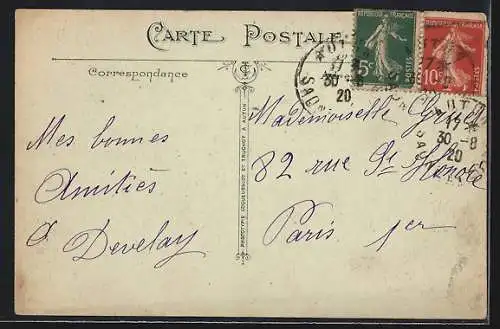 CARTE POSTALE
Correspondance
RÉPUBLIQUE FRANÇAISE
5c POSTES
RÉPUBLIQUE FRANÇAISE
10c POSTES
30
20
17
30 -8
20
Mes bonnes
Amitiés
Develay
PHOTOTYPIE COQUEUGNIOT ET TRUCHOT A AUTUN
Mademoiselle
82 rue St Honoré
Paris 1er